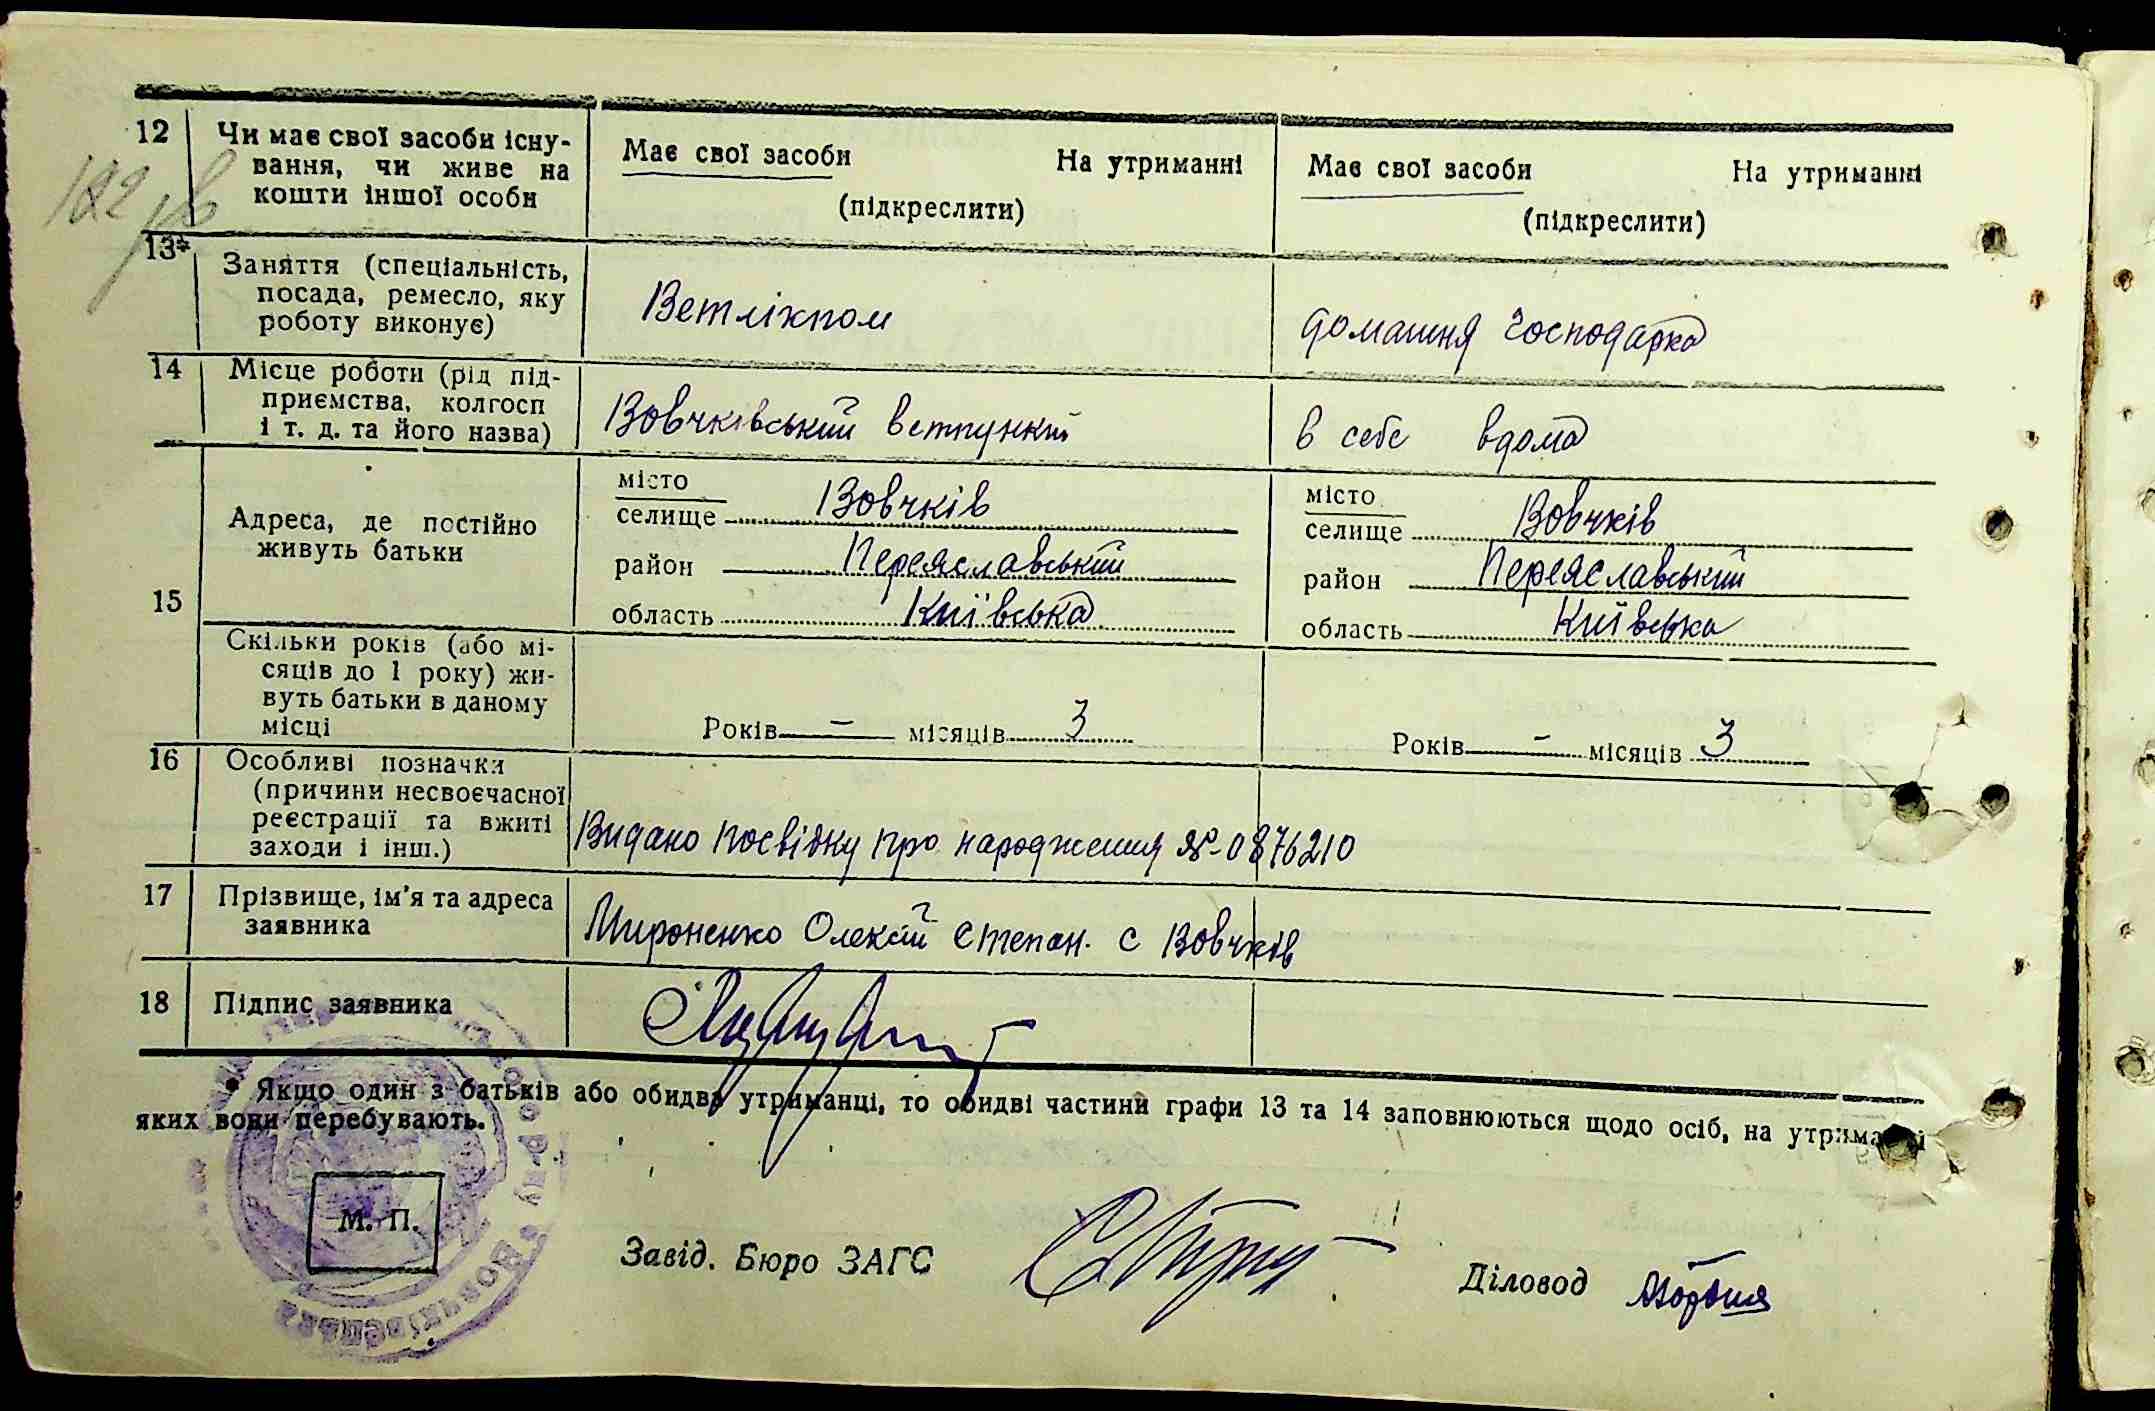 12 Чи має свої засоби існу- Має свої засоби На утриманні Має свої засоби На утриманні
вання, чи живе на
кошти іншої особи (підкреслити) (підкреслити)
13* Заняття (спеціальність,
посада, ремесло, яку Ветлікпом домашня господарка
роботу виконує)
14 Місце роботи (рід під-
приємства, колгосп Вовчківський ветпункт в себе вдома
і т. д. та його назва)
15 Адреса, де постійно
живуть батьки
місто Вовчків місто Вовчків
селище селище
район Переяславський район Переяславський
область Київська область Київська
Скільки років (або мі-
сяців до 1 року) жи-
вуть батьки в даному
місці Років – місяців 3 Років – місяців 3
16 Особливі позначки
(причини несвоєчасної
реєстрації та вжиті Видано посвідку про народження № 0876210
заходи і інш.)
17 Прізвище, ім'я та адреса
заявника Мироненко Олексій Степан. с Вовчків
18 Підпис заявника
* Якщо один з батьків або обидва утриманці, то обидві частини графи 13 та 14 заповнюються щодо осіб, на утриманні
яких вони перебувають.
М. П.
Завід. Бюро ЗАГС Діловод